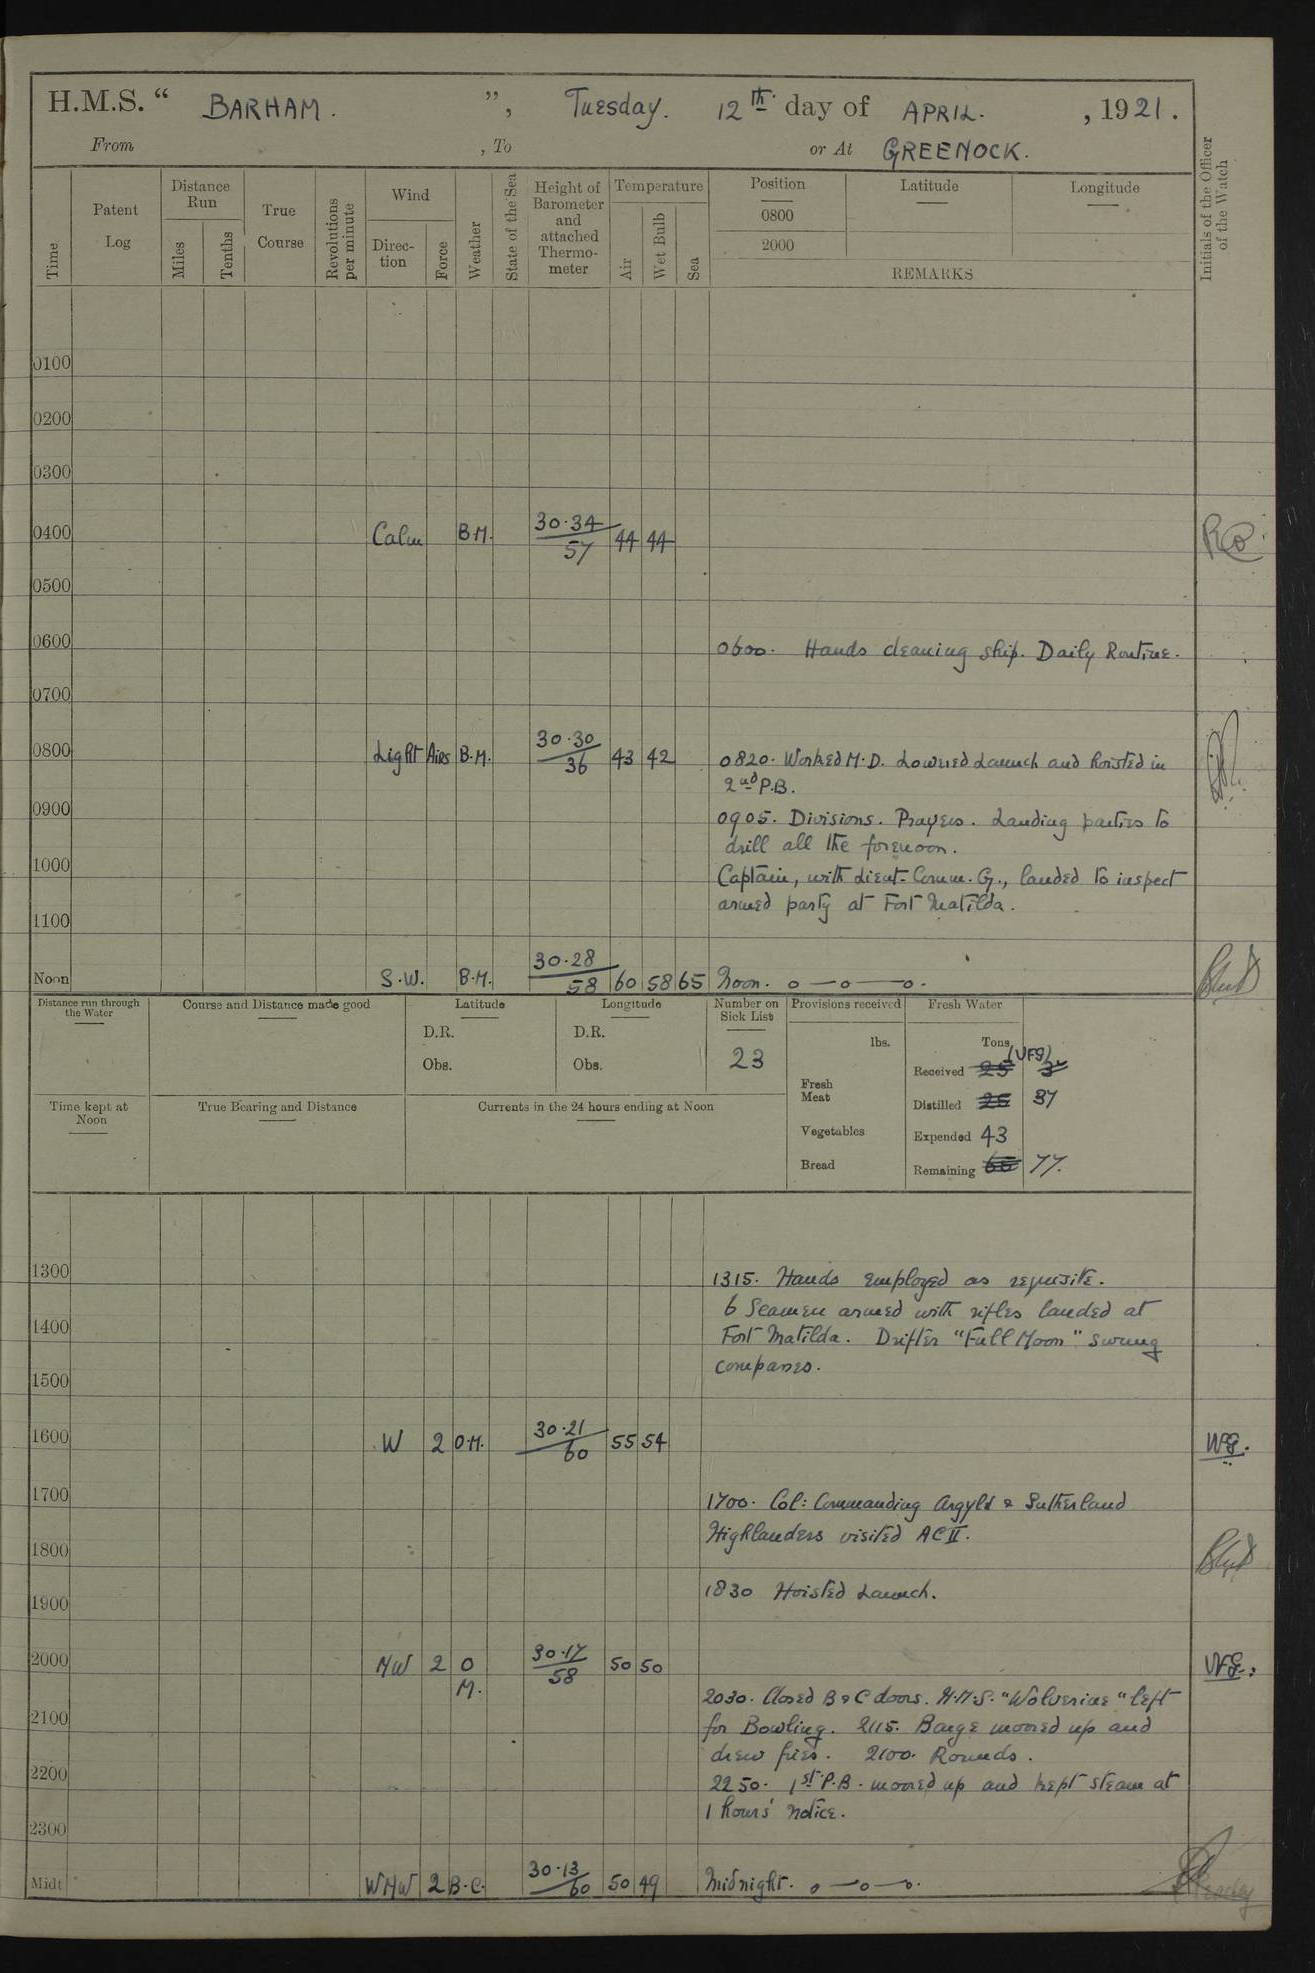 H.M.S. “ BARHAM. ”, Tuesday. 12th day of APRIL. , 1921.
From , To or At GREENOCK.
Time Patent Log Distance Run Miles Tenths True Course Revolutions per minute Wind Direc-tion Force Weather State of the Sea Height of Barometer and attached Thermo-meter Temperature Air Wet Bulb Sea Position Latitude Longitude Initials of the Officer of the Watch
0800
2000
REMARKS
0100
0200
0300
0400 Calm B.M. 30.34 57 44 44
0500
0600 0600. Hands cleaning ship. Daily Routine.
0700
0800 Light Airs B.M. 30.30 36 43 42 0820. Worked M.D. Lowered Launch and hoisted in
2nd P.B.
0900 0905. Divisions. Prayers. Landing parties to
drill all the forenoon.
1000 Captain, with Lieut-Comm. G., landed to inspect
armed party at Fort Matilda.
1100
Noon S.W. B.M. 30.28 58 60 58 65 Noon. o — o — o.
Distance run through the Water Course and Distance made good Latitude Longitude Number on Sick List Provisions received Fresh Water
D.R. D.R. 23 lbs. Tons
Obs. Obs. (VFG)
Received 25
Fresh Meat Distilled 25 37
Time kept at Noon True Bearing and Distance Currents in the 24 hours ending at Noon
Vegetables Expended 43
Bread Remaining 65 77.
1300 1315. Hands employed as requisite.
6 Seamen armed with rifles landed at
1400 Fort Matilda. Drifter "Full Moon" swung
compasses.
1500
1600 W 2 O.M. 30.21 60 55 54
1700 1700. Col: Commanding Argyld & Sutherland
Highlanders visited AC II.
1800
1830 Hoisted Launch.
1900
2000 NW 2 O M. 30.17 58 50 50
2030. Closed B & C doors. H.M.S. "Wolverine" left
2100 for Bowling. 2115. Barge moored up and
drew fires. 2100. Rounds.
2200 2250. 1st P.B. moored up and kept steam at
1 hours' notice.
2300
Midt WNW 2 B.C. 30.13 60 50 49 Midnight. o — o — o.